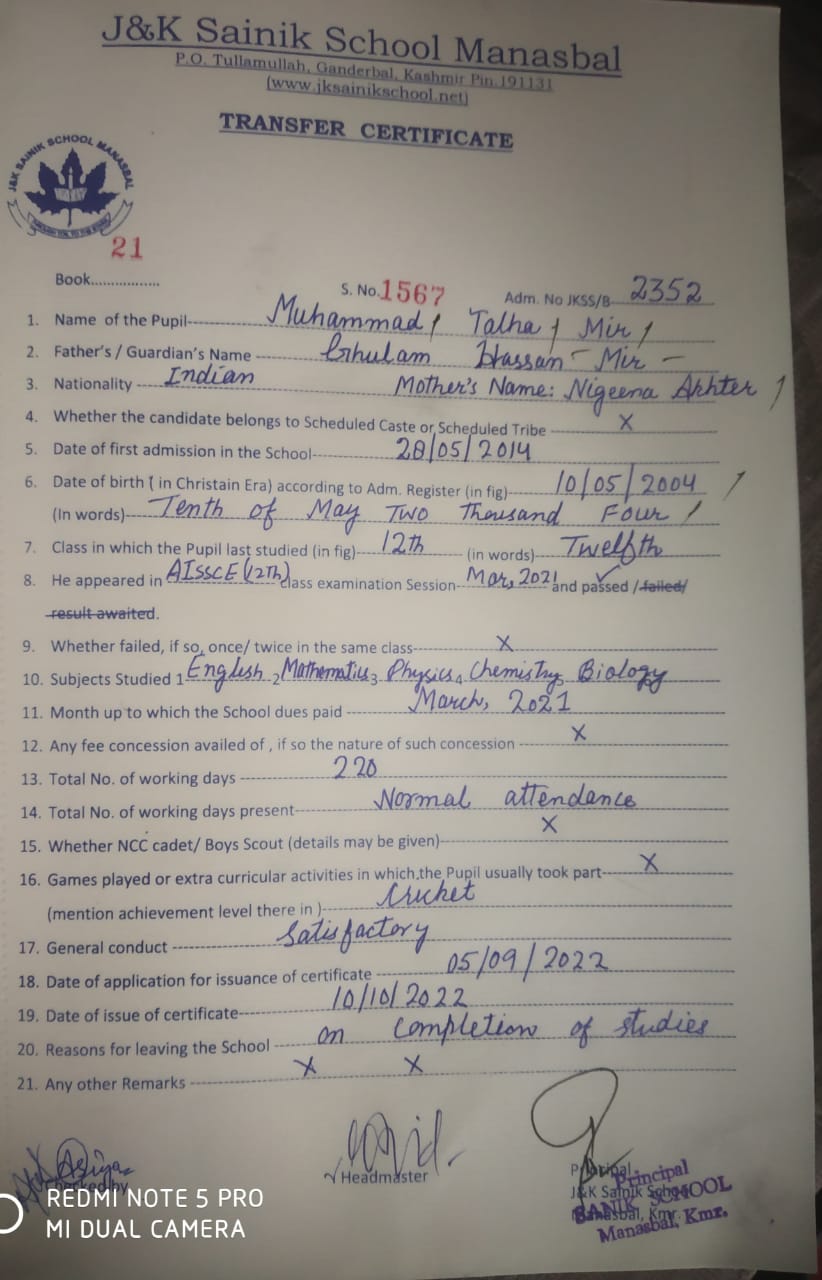 J&K Sainik School Manasbal
P.O. Tullamullah, Ganderbal, Kashmir Pin.191131
(www.jksainikschool.net)
TRANSFER CERTIFICATE
J&K SAINIK SCHOOL MANASBAL
21
Book................. S. No. 1567 Adm. No JKSS/B 2352
1. Name of the Pupil Muhammad Talha Mir
2. Father's / Guardian's Name Ghulam Hassan - Mir -
3. Nationality Indian Mother's Name: Nigeena Akhter
4. Whether the candidate belongs to Scheduled Caste or Scheduled Tribe X
5. Date of first admission in the School 28/05/2014
6. Date of birth ( in Christain Era) according to Adm. Register (in fig) 10/05/2004
(In words) Tenth of May Two Thousand Four
7. Class in which the Pupil last studied (in fig) 12th (in words) Twelfth
8. He appeared in AISSCE (12Th) class examination Session Mar, 2021 and passed /failed/
result awaited.
9. Whether failed, if so, once/ twice in the same class X
10. Subjects Studied 1 English 2 Mathematics 3 Physics 4 Chemistry Biology
11. Month up to which the School dues paid March, 2021
12. Any fee concession availed of , if so the nature of such concession X
13. Total No. of working days 220
14. Total No. of working days present Normal attendance
15. Whether NCC cadet/ Boys Scout (details may be given) X
16. Games played or extra curricular activities in which the Pupil usually took part X
(mention achievement level there in ) Cricket
17. General conduct Satisfactory
18. Date of application for issuance of certificate 05/09/2022
19. Date of issue of certificate 10/10/2022
20. Reasons for leaving the School on completion of studies
21. Any other Remarks X X
Checked by Headmaster Principal
J&K Sainik School
Manasbal, Kmr.
Principal
SAINIK SCHOOL
Manasbal, Kmr.
REDMI NOTE 5 PRO
MI DUAL CAMERA